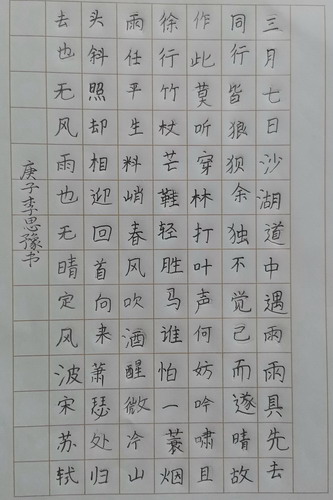 三月七日沙湖道中遇雨雨具先去
同行皆狼狈余独不觉已而遂晴故
作此莫听穿林打叶声何妨吟啸且
徐行竹杖芒鞋轻胜马谁怕一蓑烟
雨任平生料峭春风吹酒醒微冷山
头斜照却相迎回首向来萧瑟处归
去也无风雨也无晴定风波宋苏轼
庚子李思豫书